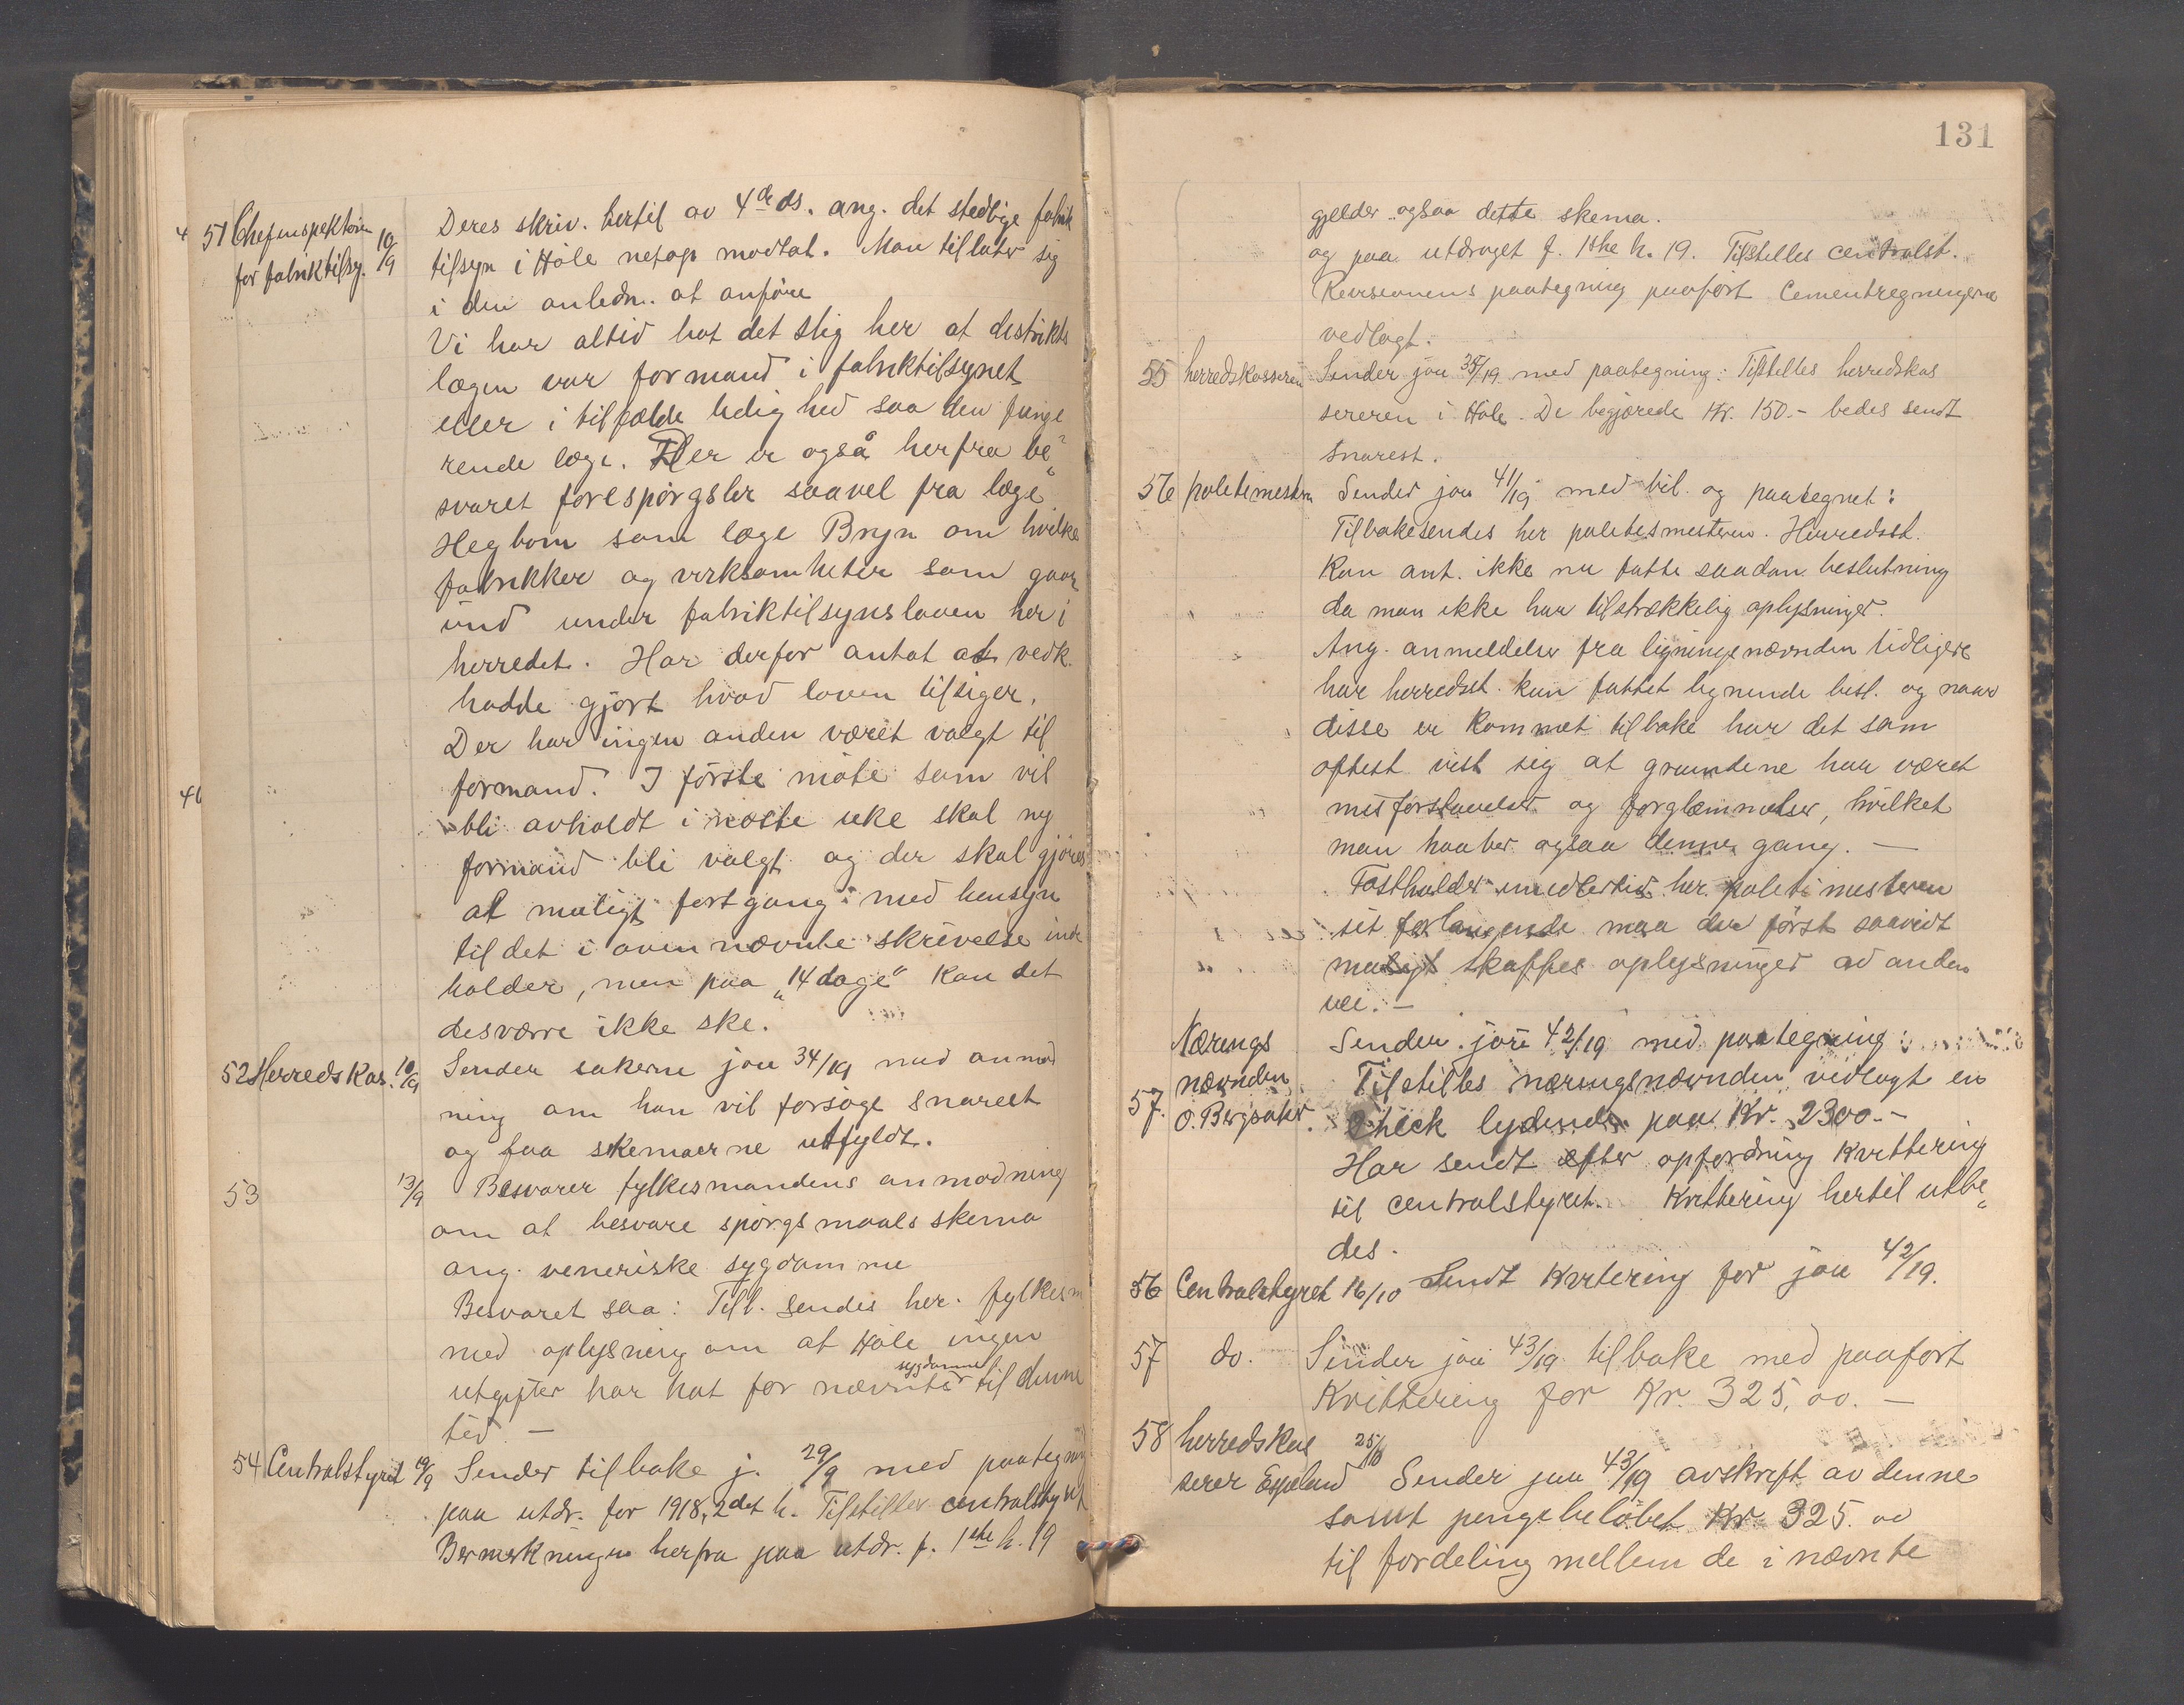 51 Chefinspektøren 10/9 Deres skriv. hertil av 4de ds. ang. det stedlige fabrik
for fabriktilsy. tilsyn i Høle netop modtat. Man tillater sig
i den anledn. at anføre
Vi har altid hat det slig her at distrikts
lægen var formand i fabriktilsynet
eller i tilfælde ledighed saa den funge
rende læge. Der er også herfra be„
svaret forespørgsler saavel fra læge
Hegbom som læge Bryn om hvilke
fabrikker og virksomheter som gaar
ind under fabriktilsynsloven her i
herredet. Har derfor antat at vedk.
hadde gjørt hvad loven tilsiger.
Der har ingen anden været valgt til
formand. I første møte som vil
bli avholdt i næste uke skal ny
formand bli valgt og der skal gjøres
alt muligt fortgang med hensyn
til det i ovennævnte skrivelse inde
holder, men paa „14 dage" kan det
desværre ikke ske.
52 Herredskas. 10/9 Sender sakerne jou 34/19 med anmod
ning om han vil forsøge snarest
og faa skemaerne utfyldt.
53 13/9 Besvarer fylkesmandens anmodning
om at besvare spørgsmaals skema
ang. veneriske sygdomme
Besvaret saa: Tilb. sendes her. fylkesm
med oplysning om at Høle ingen
utgifter har hat for nævnte sygdomme til denne
tid –
54 Centralstyret 19/9 Sender tilbake j. 29/9 med paategning
paa utdr. for 1918, 2det h. Tilstilles centralstyret
Bermerkningen herfra paa utdr. f. 1ste h. 19
131
gjelder ogsaa dette skema.
og paa utdraget f. 1ste h. 19. Tilstilles centralst.
Revisionens paategning paaført Cementregningerne
vedlagt.
55 herredskasseren Sender jou 35/19 med paategning: Tilstilles herredskas
sereren i Høle. De begjærede Kr. 150.- bedes sendt
snarest.
56 politimesteren Sender jou 41/19 med bil. og paategnet:
Tilbakesendes her politimesteren. Herredsst.
kan ant. ikke nu fatte saadan beslutning
da man ikke har tilstrækkelig oplysninger.
Ang. anmeldelser fra ligningsnævnden tidligere
har herredsst. kun fattet lignende besl. og naar
disse er kommet tilbake har det som
oftest vist sig at grundene har været
misforstaaelser og forglæmmelser, hvilket
man haaber ogsaa denne gang. –
Fastholder imedlertid her. politimesteren
sit forlangende maa der først saavidt
muligt skaffes oplysninger ad anden
vei. –
Nærings Sender jou 42/19 med paategning:
nævnden Tilstilles næringsnævnden vedlagt en
57. O. Bergsaker. Check lydende paa Kr. 2300.-
Har sendt efter opfordring Kvittering
til centralstyret. Kvittering hertil utbe„
des.
56 Centralstyret 16/10 Sendt Kvitering for jou 42/19.
57 do. Sender jou 43/19 tilbake med paaført
Kvittering for Kr. 325,00. –
58 herredskas 25/10
serer Espeland Sender jou 43/19 avskrift av denne
samt pengebeløbet Kr 325.00
til fordeling mellem de i nævnte